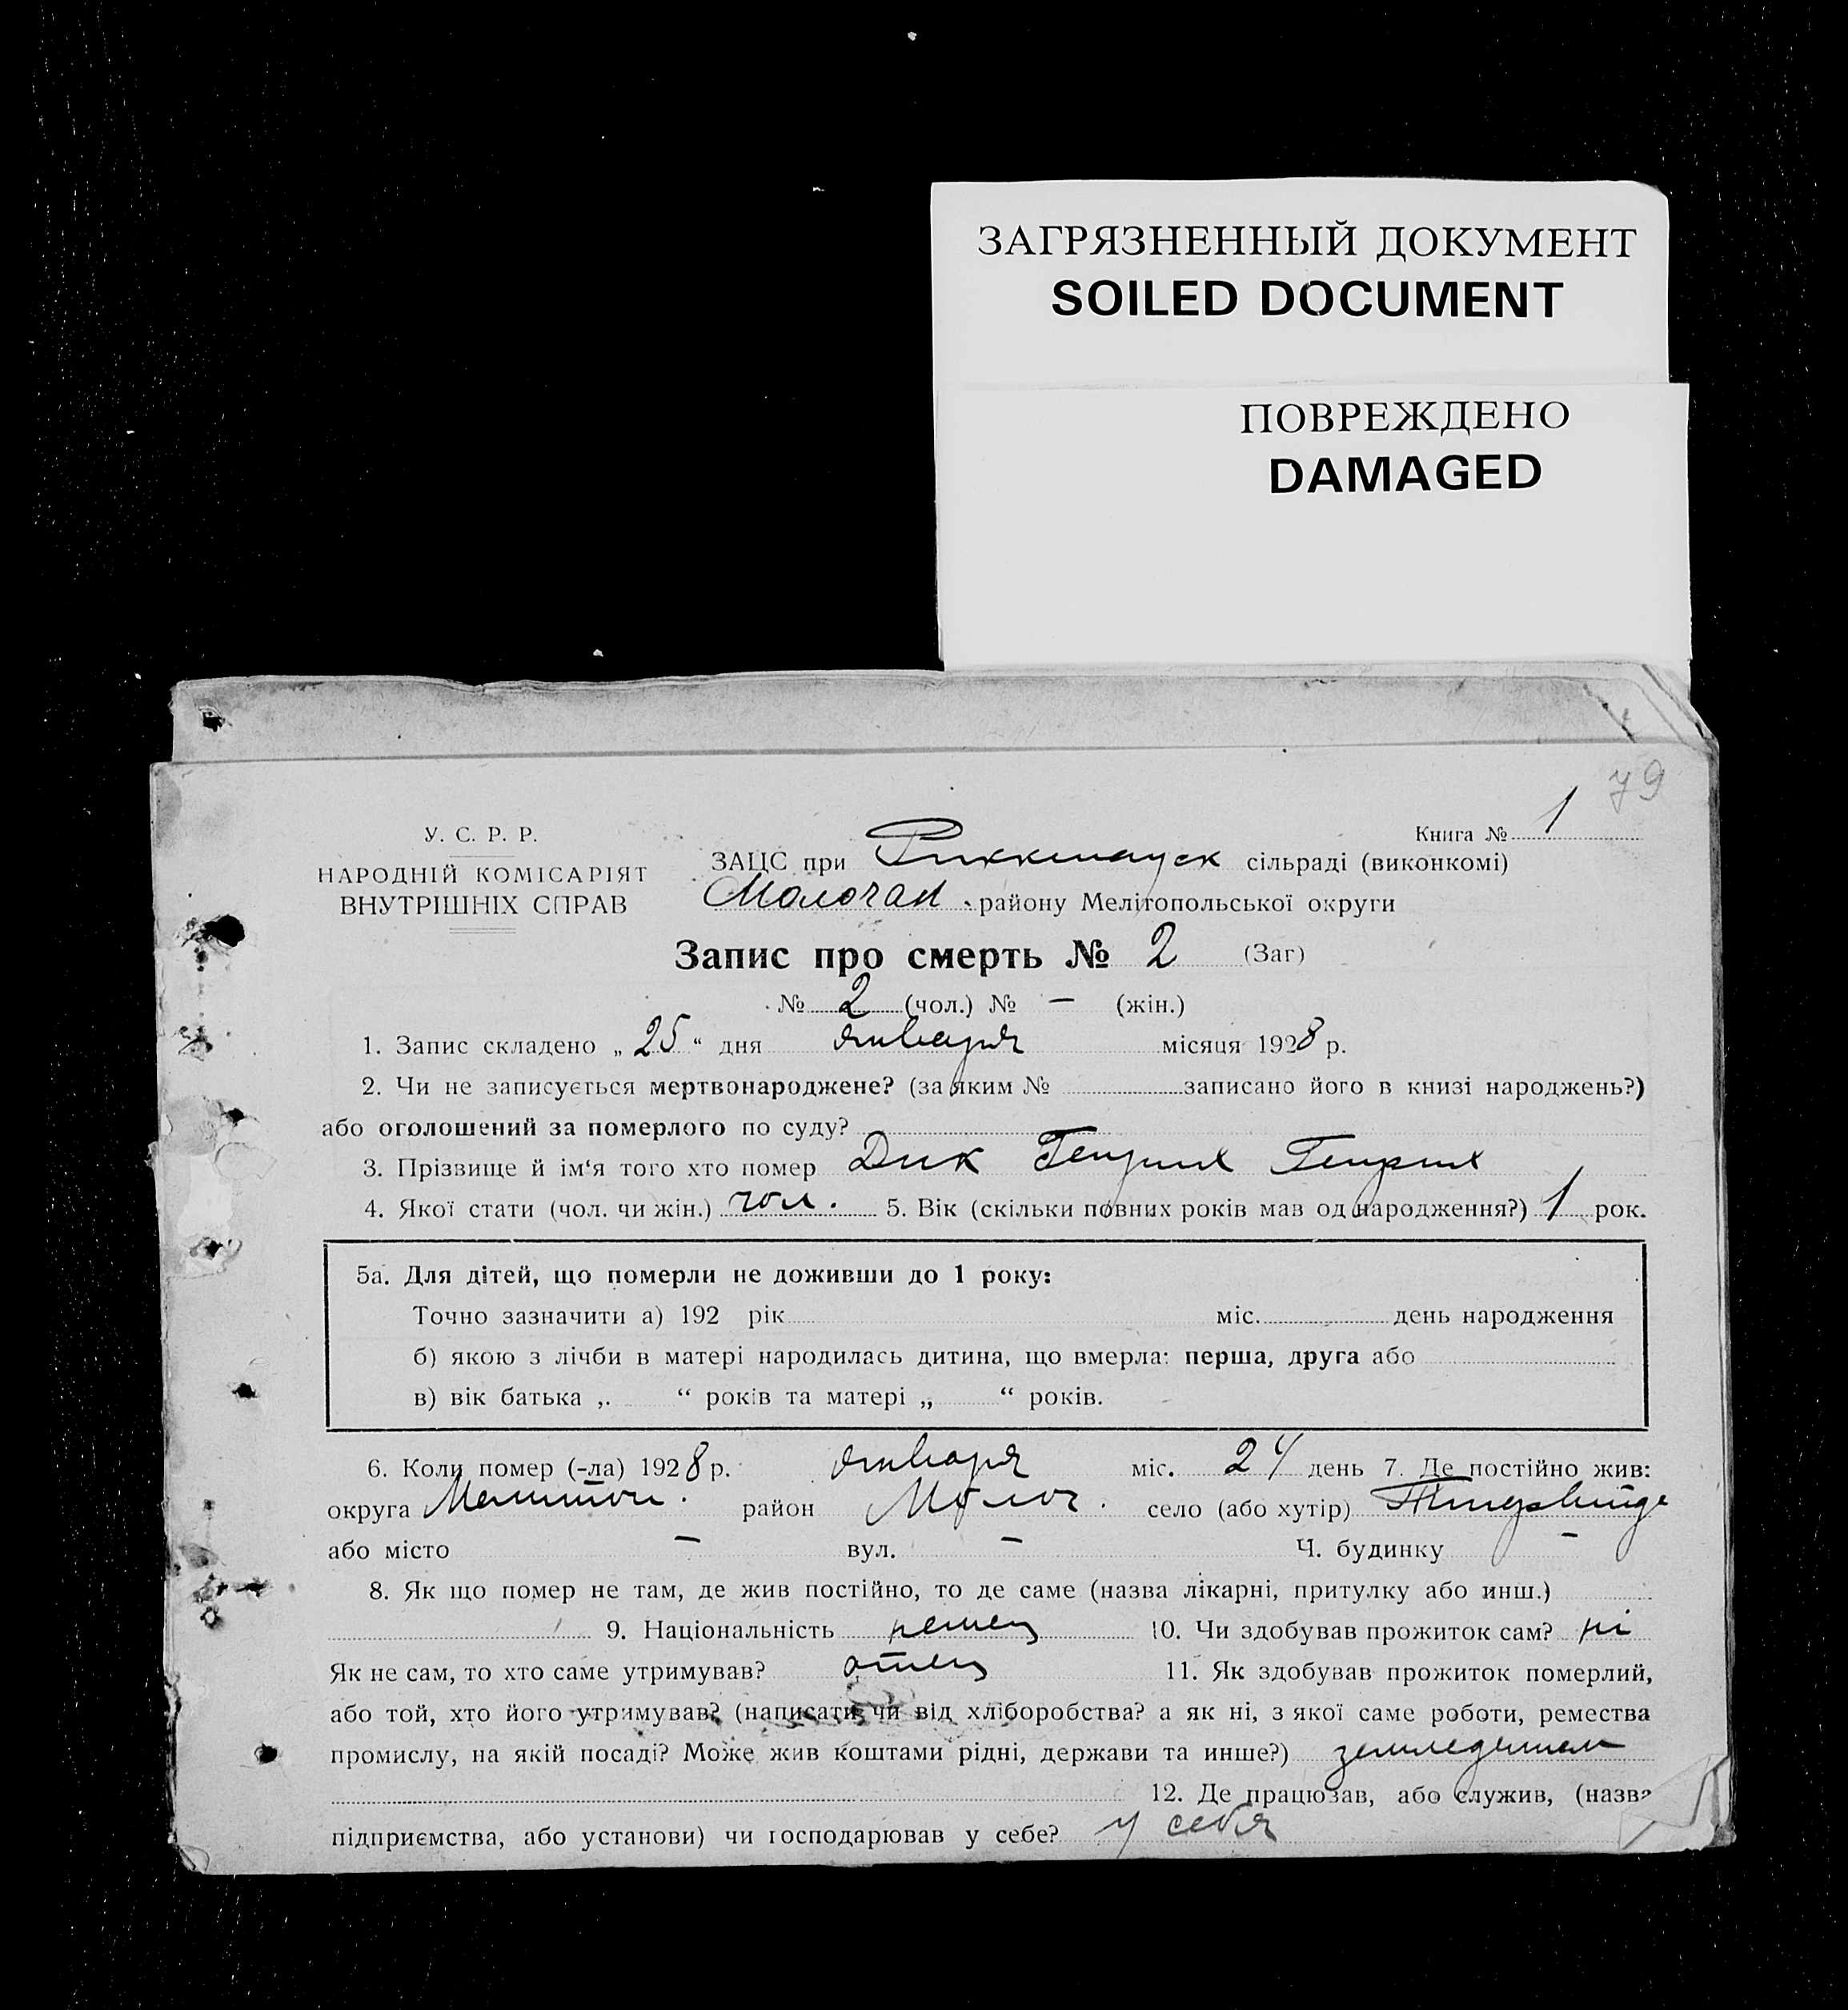 ЗАГРЯЗНЕННЫЙ ДОКУМЕНТ
SOILED DOCUMENT
ПОВРЕЖДЕНО
DAMAGED
79
У. С. Р. Р.
НАРОДНІЙ КОМІСАРІЯТ
ВНУТРІШНІХ СПРАВ
Книга № 1
ЗАЦС при Риккенауск сільраді (виконкомі)
Молочан. району Мелітопольської округи
Запис про смерть № 2 (Заг)
№ 2 (чол.) № — (жін.)
1. Запис складено „ 25 “ дня января місяця 1928 р.
2. Чи не записується мертвонароджене? (за яким № записано його в книзі народжень?)
або оголошений за померлого по суду?
3. Прізвище й ім‘я того хто помер Дик Генрих Генрих
4. Якої стати (чол. чи жін.) чол. 5. Вік (скільки повних років мав од народження?) 1 рок.
5а. Для дітей, що померли не доживши до 1 року:
Точно зазначити а) 192 рік міс. день народження
б) якою з лічби в матері народилась дитина, що вмерла: перша, друга або
в) вік батька „ “ років та матері „ “ років.
6. Коли помер (-ла) 1928 р. января міс. 24 день 7. Де постійно жив:
округа Мелитоп. район Молоч. село (або хутір)
або місто — вул. — Ч. будинку —
8. Як що помер не там, де жив постійно, то де саме (назва лікарні, притулку або инш.)
9. Національність немец 10. Чи здобував прожиток сам? ні
Як не сам, то хто саме утримував? отец 11. Як здобував прожиток померлий,
або той, хто його утримував? (написати чи від хліборобства? а як ні, з якої саме роботи, ремества
промислу, на якій посаді? Може жив коштами рідні, держави та инше?) земледелием
12. Де працював, або служив, (назва
підприємства, або установи) чи господарював у себе? у себя